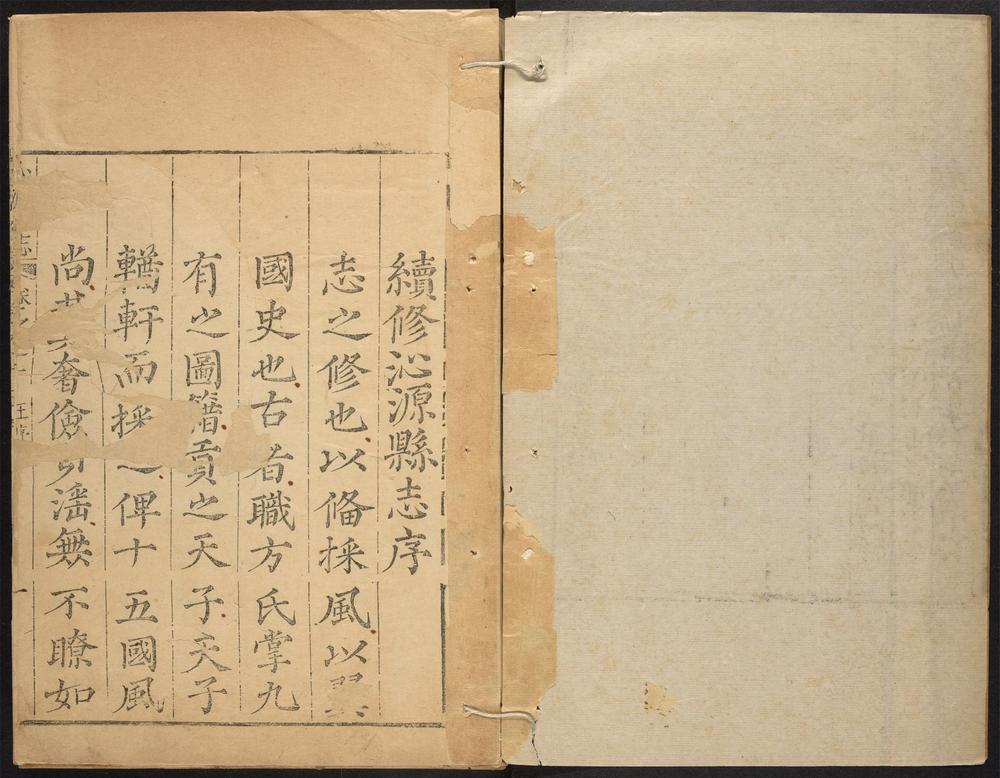 續修沁源縣志序
志之修也以備採風以
國史也古者職方氏掌九
有之圖籍貢之天子天子
輶軒而採之俾十五國風
尚奢儉淫無不瞭如
志
王序
一